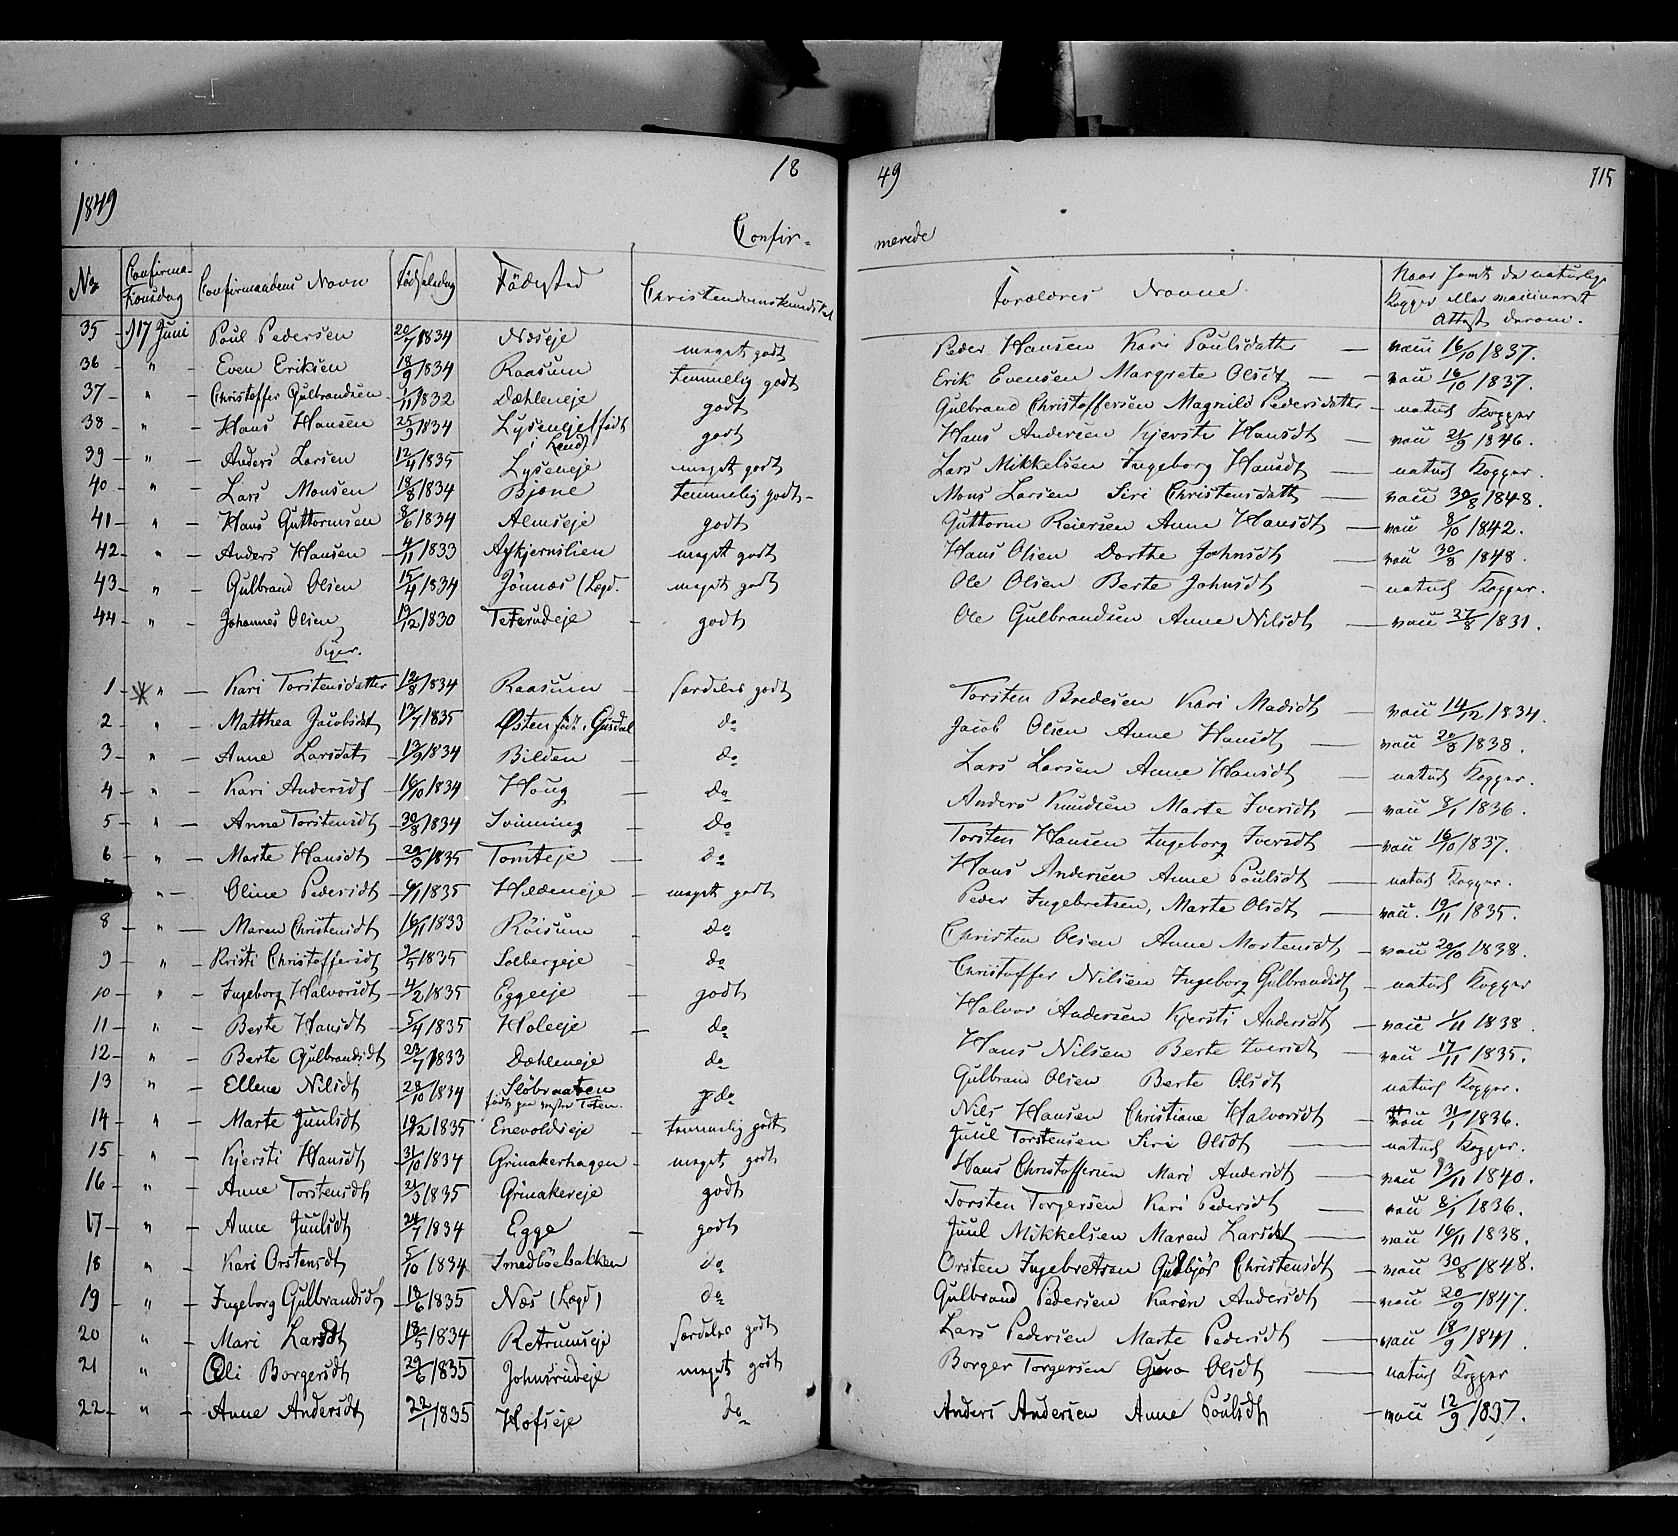 18 49 115
1849
Confirmerede
No Confirmationsdag Confirmandens Navn Fødselsdag Födested Christendomskundskab Forældres Navne Naar Havt de naturlige Kopper eller vaccineret Attest derom.
35 17 Juni Poul Pedersen 20/7 1834 Næseje meget godt Peder Hansen Kari Poulsdatter — vacc 16/10 1837.
36 " Even Eriksen 18/9 1834 Raasum temmelig godt Erik Evensen Margrete Olsdt — vacc 16/10 1837.
37 " Christoffer Gulbrandsen 1/11 1832 Dæhleneje godt Gulbrand Christoffersen Magnild Pedersdatter — naturl Kopper
38 " Hans Hansen 25/9 1834 Lyseneje født i Land godt Hans Andersen Kjersti Hansdt — vacc 21/9 1846.
39 " Anders Larsen 12/4 1835 Lyseneje meget godt Lars Mikkelsen Ingeborg Hansdt — naturl Kopper.
40 " Lars Monsen 18/8 1834 Bjone temmelig godt Mons Larsen Siri Christensdatt — vacc 30/8 1848.
41 " Hans Guttormsen 8/6 1834 Almseje godt Guttorm Reiersen Anne Hansdt — vacc 8/10 1842.
42 " Anders Hansen 4/11 1833 Askjernslien meget godt Hans Olsen Dorthe Johnsdt — vacc 30/8 1848.
43 " Gulbrand Olsen 15/4 1834 Jönnæs (Legd. meget godt Ole Olsen Berte Johnsdt naturl Kopper.
44 " Johannes Olsen 12/12 1830 Teterudeje godt Ole Gulbrandsen Anne Nilsdt — vacc 27/8 1831.
Piger.
1 " Kari Torstensdatter 12/8 1834 Raasum særdeles godt Torsten Bredesen Kari Madsdt — vacc 14/12 1834.
2 " Matthea Jacobsdt 13/7 1835 Østen føds i Gusdal do Jacob Olsen Anne Hansdt — vacc 20/8 1838.
3 " Anne Larsdat 13/9 1834 Bilden do Lars Larsen Anne Hansdt — naturl Kopper.
4 " Kari Andersdt 16/10 1834 Houg do Anders Knudsen Marte Iversdt — vacc 8/1 1836.
5 " Anne Torstensdt 30/8 1834 Svinning do Torsten Hansen Ingeborg Iversdt — vacc 16/10 1837.
6 " Marte Hansdt 29/3 1835 Tomteje do Hans Andersen Anne Poulsdt — naturl Kopper.
" Oline Pedersdt 6/1 1835 Hildeneje meget godt Peder Ingebretsen, Marte Olsdt — vacc. 19/11 1835.
8 " Maren Christensdt 16/11 1833 Röisum do Christen Olsen Anne Mortensdt — vacc 20/10 1838.
9 " Kristi Christoffersdt 9/5 1835 Solbergeje do Christoffer Nilsen Ingeborg Gulbrandsdt — naturl Kopper
10 " Ingeborg Halvorsdt 4/2 1835 Eggeeje godt Halvor Andersen Kjersti Andersdt — vacc 1/11 1838.
11 " Berte Hansdt 5/4 1835 Holeeje do Hans Nilsen Berte Iversdt — vacc 17/11 1835.
12 " Berte Gulbrandsdt 23/7 1833 Dæhleneje do Gulbrand Olsen Berte Olsdt naturl Kopper.
13 " Ellene Nilsdt 28/10 1834 Slobraaten født paa vestre Toten. do Nils Hansen Christiane Halvorsdt — vacc 31/1 1836.
14 " Marte Juulsdt 19/2 1835 Enevoldseje temmelig godt Juul Torstensen Siri Olsdt — naturl Kopper.
15 " Kjersti Hansdt 31/10 1834 Grinakerhagen meget godt Hans Christoffersen Mari Andersdt — vacc 13/11 1840.
16 " Anne Torstensdt 21/3 1835 Grinakereje godt Torsten Torgersen Kari Pedersdt — vacc 8/1 1836.
17 " Anne Juulsdt 24/7 1834 Egge godt Juul Mikkelsen Maren Larsdt — vacc 16/11 1838.
18 " Kari Orstensdt 5/10 1834 Smedböebakken do Orsten Ingebretsen Gudbjör Christensdt — vacc 30/8 1848.
19 " Ingeborg Gulbrandsdt 13/6 1835 Næs (Legd) do Gulbrand Pedersen Karen Andersdt — vacc 20/9 1847.
20 " Mari Larsdt 18/5 1834 Retrumseje særdeles godt Lars Pedersen Marte Pedersdt — vacc 18/9 1841.
21 " Eli Borgersdt 29/6 1835 Johnsrudeje meget godt Borger Torgersen Guro Olsdt — naturl Kopper
22 " Anne Andersdt 22/1 1835 Hofseje do Anders Andersen Anne Poulsdt — vacc 12/9 1837.